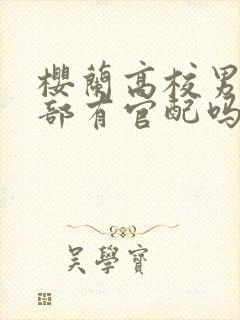 櫻蘭高校男
部有官配吗
吴學寶